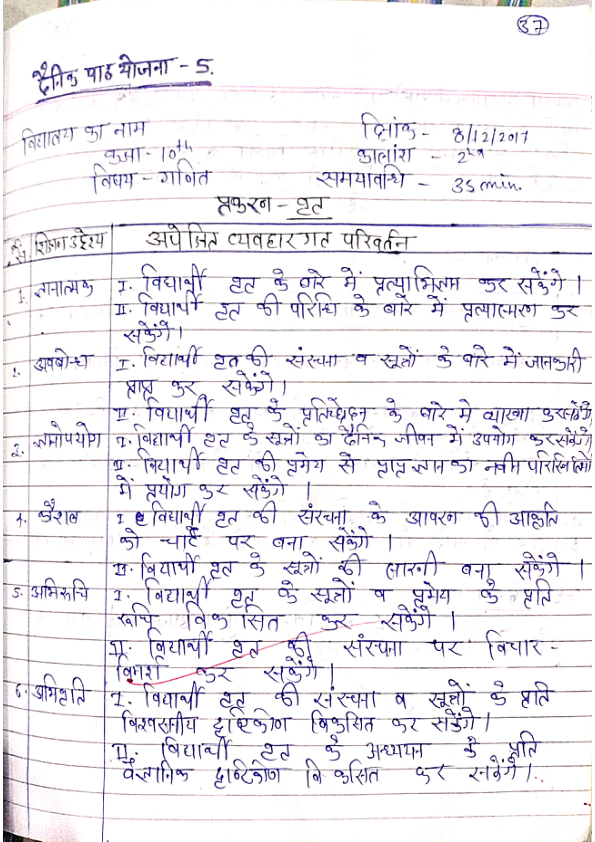 37
दैनिक पाठ योजना - 5.
विद्यालय का नाम
दिनांक - 8/12/2017
कक्षा - 10th
कालांश - 2nd
विषय - गणित
समयावधि - 35 min.
प्रकरण - वृत
क्र.सं. शिक्षण उद्देश्य अपेक्षित व्यवहारगत परिवर्तन
1. ज्ञानात्मक I. विद्यार्थी वृत के बारे में प्रत्याभिज्ञान कर सकेंगे।
II. विद्यार्थी वृत की परिधि के बारे में प्रत्यास्मरण कर
सकेंगे।
2. अवबोध I. विद्यार्थी वृत की संरचना व सूत्रों के बारे में जानकारी
प्राप्त कर सकेंगे।
II. विद्यार्थी वृत के प्रतिच्छेदन के बारे मे व्याख्या कर सकेंगे
2. ज्ञानोपयोग I. विद्यार्थी वृत के सूत्रों का दैनिक जीवन में उपयोग कर सकेंगे
II. विद्यार्थी वृत की प्रमेय से प्राप्त ज्ञान का नवीन परिस्थितियों
में प्रयोग कर सकेंगे।
4. कौशल I विद्यार्थी वृत की संरचना के आवरन की आकृति
को चार्ट पर बना सकेंगे।
II. विद्यार्थी वृत के सूत्रों की सारनी बना सकेंगे।
5. अभिरूचि I. विद्यार्थी वृत के सूत्रों व प्रमेय के प्रति
रूचि विकसित कर सकेंगे।
II. विद्यार्थी वृत की संरचना पर विचार -
विमर्श कर सकेंगे।
6. अभिवृति I. विद्यार्थी वृत की संरचना व सूत्रों के प्रति
विश्वसनीय दृष्टिकोण विकसित कर सकेंगे।
II. विद्यार्थी वृत के अध्ययन के प्रति
वैज्ञानिक दृष्टिकोण विकसित कर सकेंगे।